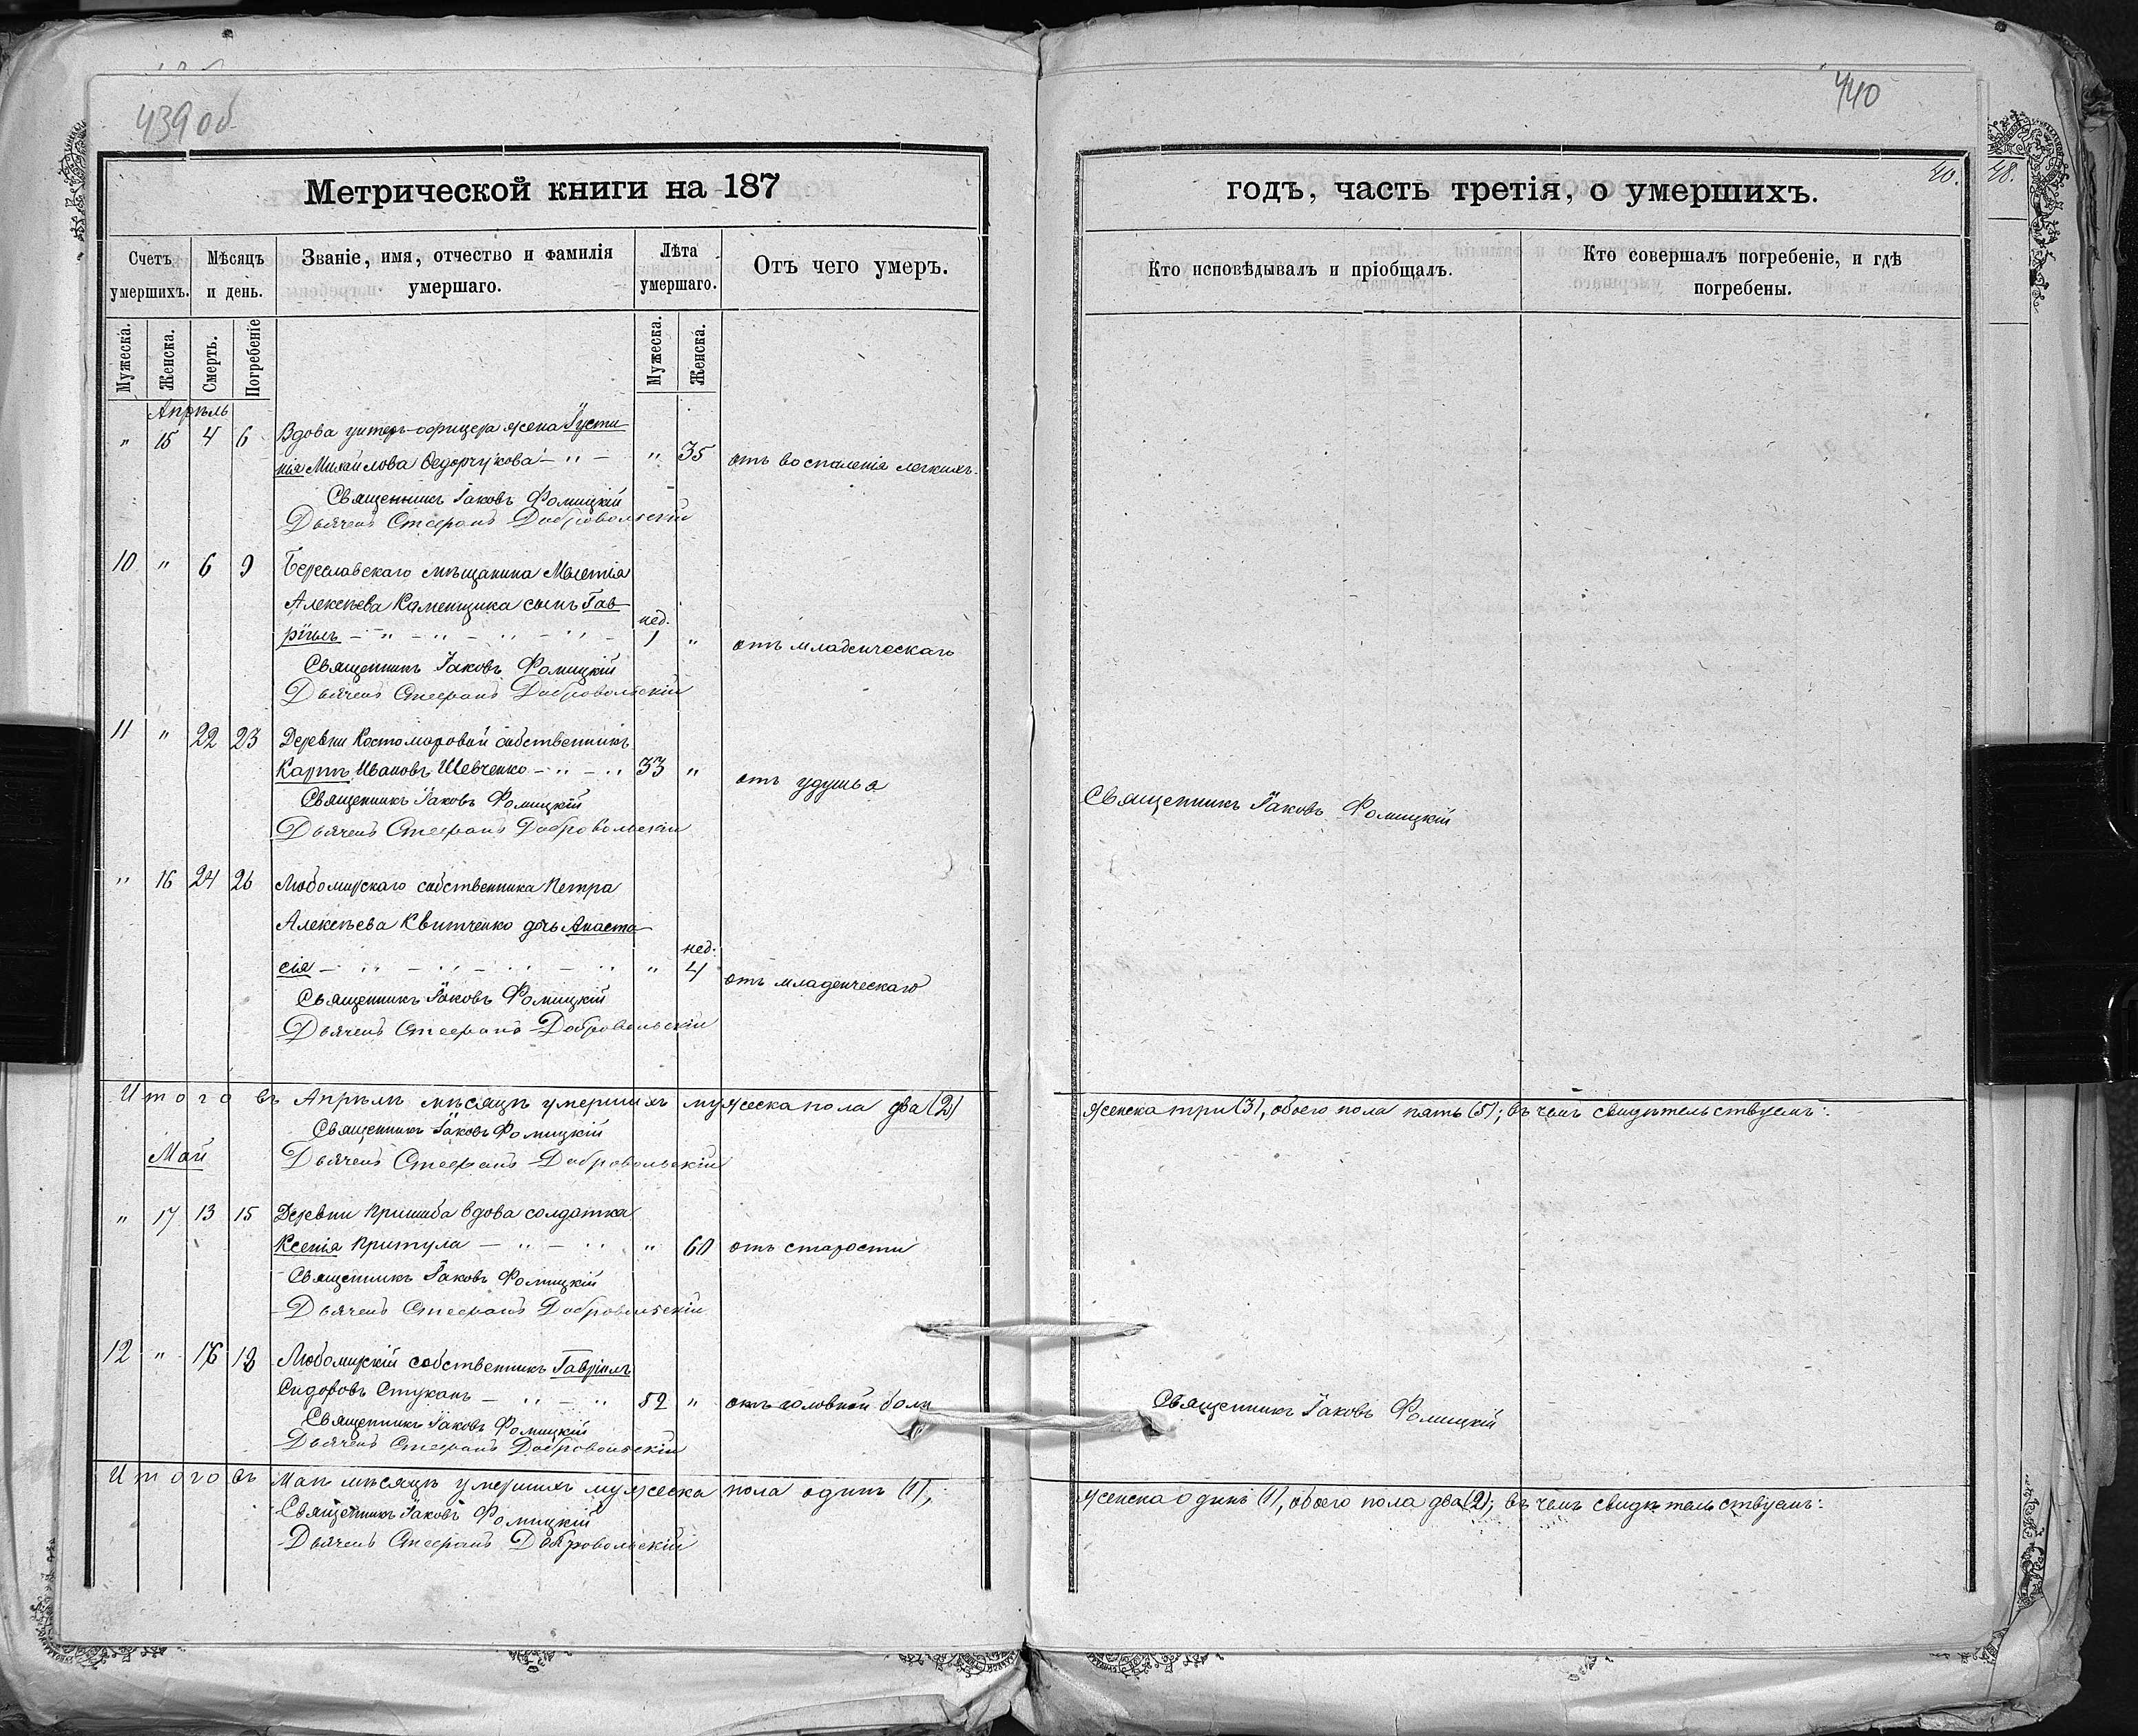 439 об
Метрической книги на 187
Счетъ умершихъ.
Мѣсяцъ и день.
Званіе, имя, отчество и фамилія умершаго.
Лѣта умершаго.
Отъ чего умеръ.
Мужеска.
Женска.
Смерть.
Погребеніе
Мужеска.
Женска.
Апрѣль
" 15 4 6 Вдова унтеръ-офицера жена Іусти
нія Михайлова Ѳедорчукова - " - " 35 отъ воспаленія легкихъ.
Священникъ Іаковъ Фомицкій
Дьячекъ Стефанъ Добровольскій
10 " 6 9 Береславскаго мѣщанина Мелетія
Алексѣева Каменщика сынъ Гав
нед.
ріилъ - " - " - " - " - 1 " отъ младенческаго
Священникъ Іаковъ Фомицкій
Дьячекъ Стефанъ Добровольскій
11 " 22 23 Деревни Костомаровой собственникъ
Карпъ Ивановъ Шевченко - " - " 33 " отъ удушья
Священникъ Іаковъ Фомицкій
Дьячекъ Стефанъ Добровольскій
" 16 24 26 Любомирскаго собственника Петра
Алексѣева Квитченко дочь Анаста
нед.
сія - " - " - " - " " 4 отъ младенческаго
Священникъ Іаковъ Фомицкій
Дьячекъ Стефанъ Добровольскій
Итого въ Апрѣлѣ мѣсяцѣ умершихъ мужеска пола два (2)
Священникъ Іаковъ Фомицкій
Май Дьячекъ Стефанъ Добровольскій
" 17 13 15 Деревни Пришиба вдова солдатка
Ксенія Притула - " - " " 60 отъ старости
Священникъ Іаковъ Фомицкій
Дьячекъ Стефанъ Добровольскій
12 " 16 18 Любомирскій собственникъ Гавріилъ
Сидоровъ Стуканъ - " - " 52 " отъ головной боли
Священникъ Іаковъ Фомицкій
Дьячекъ Стефанъ Добровольскій
Итого въ Маѣ мѣсяцѣ умершихъ мужеска пола одинъ (1),
Священникъ Іаковъ Фомицкій
Дьячекъ Стефанъ Добровольскій
440
40.
48.
годъ, часть третія, о умершихъ.
Кто исповѣдывалъ и пріобщалъ.
Кто совершалъ погребеніе, и гдѣ погребены.
Священникъ Іаковъ Фомицкій
женска три (3), обоего пола пять (5); въ чемъ свидѣтельствуемъ:
Священникъ Іаковъ Фомицкій
женска одинъ (1), обоего пола два (2); въ чемъ свидѣтельствуемъ: